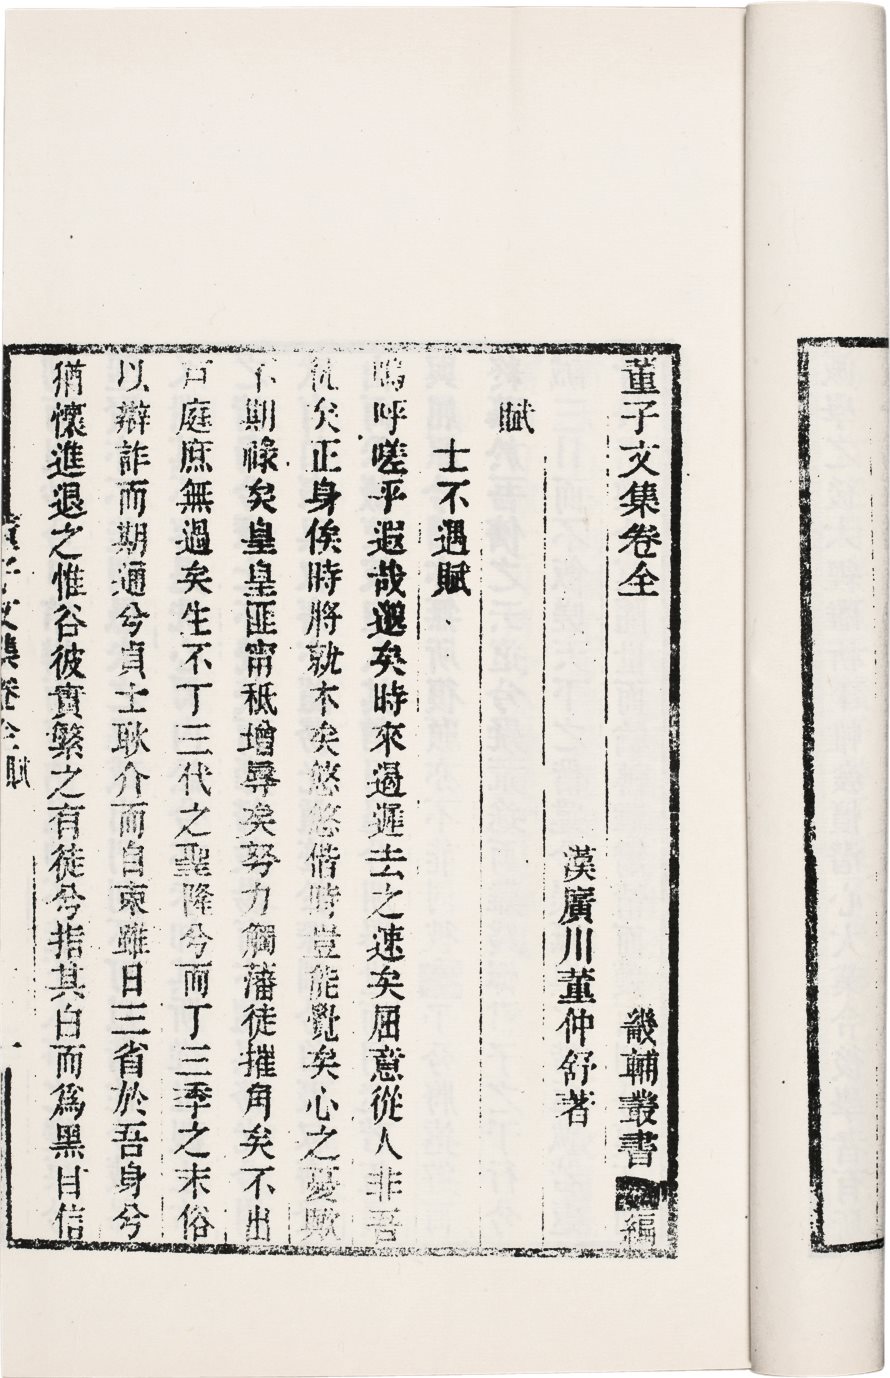 董子文集卷全 畿輔叢書 編
漢廣川董仲舒著
賦
士不遇賦
嗚呼嗟乎遐哉邈矣時來曷遲去之速矣屈意從人非吾
徒矣正身俟時將就木矣悠悠偕時豈能覺矣心之憂歟
不期祿矣皇皇匪甯秪增辱矣努力觸藩徒摧角矣不出
戸庭庶無過矣生不丁三代之聖隆兮而丁三季之末俗
以辯詐而期通兮貞士耿介而自束雖日三省於吾身兮
猶懷進退之惟谷彼實繁之有徒兮指其白而爲黑目信
董子文集卷全 賦 一